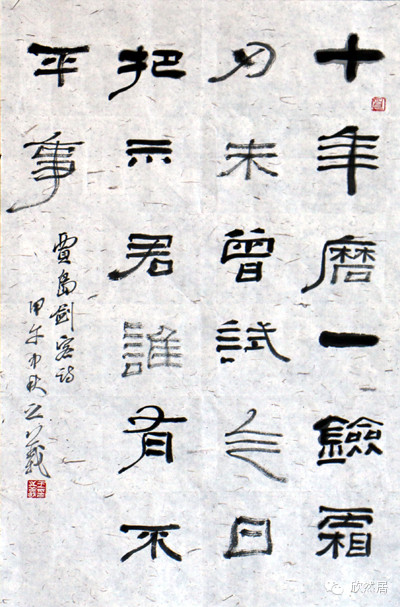 十年磨一鐱霜
刃未曾試今日
把示君誰有不
平事
賈島劍客詩
甲午中秋
欣然居